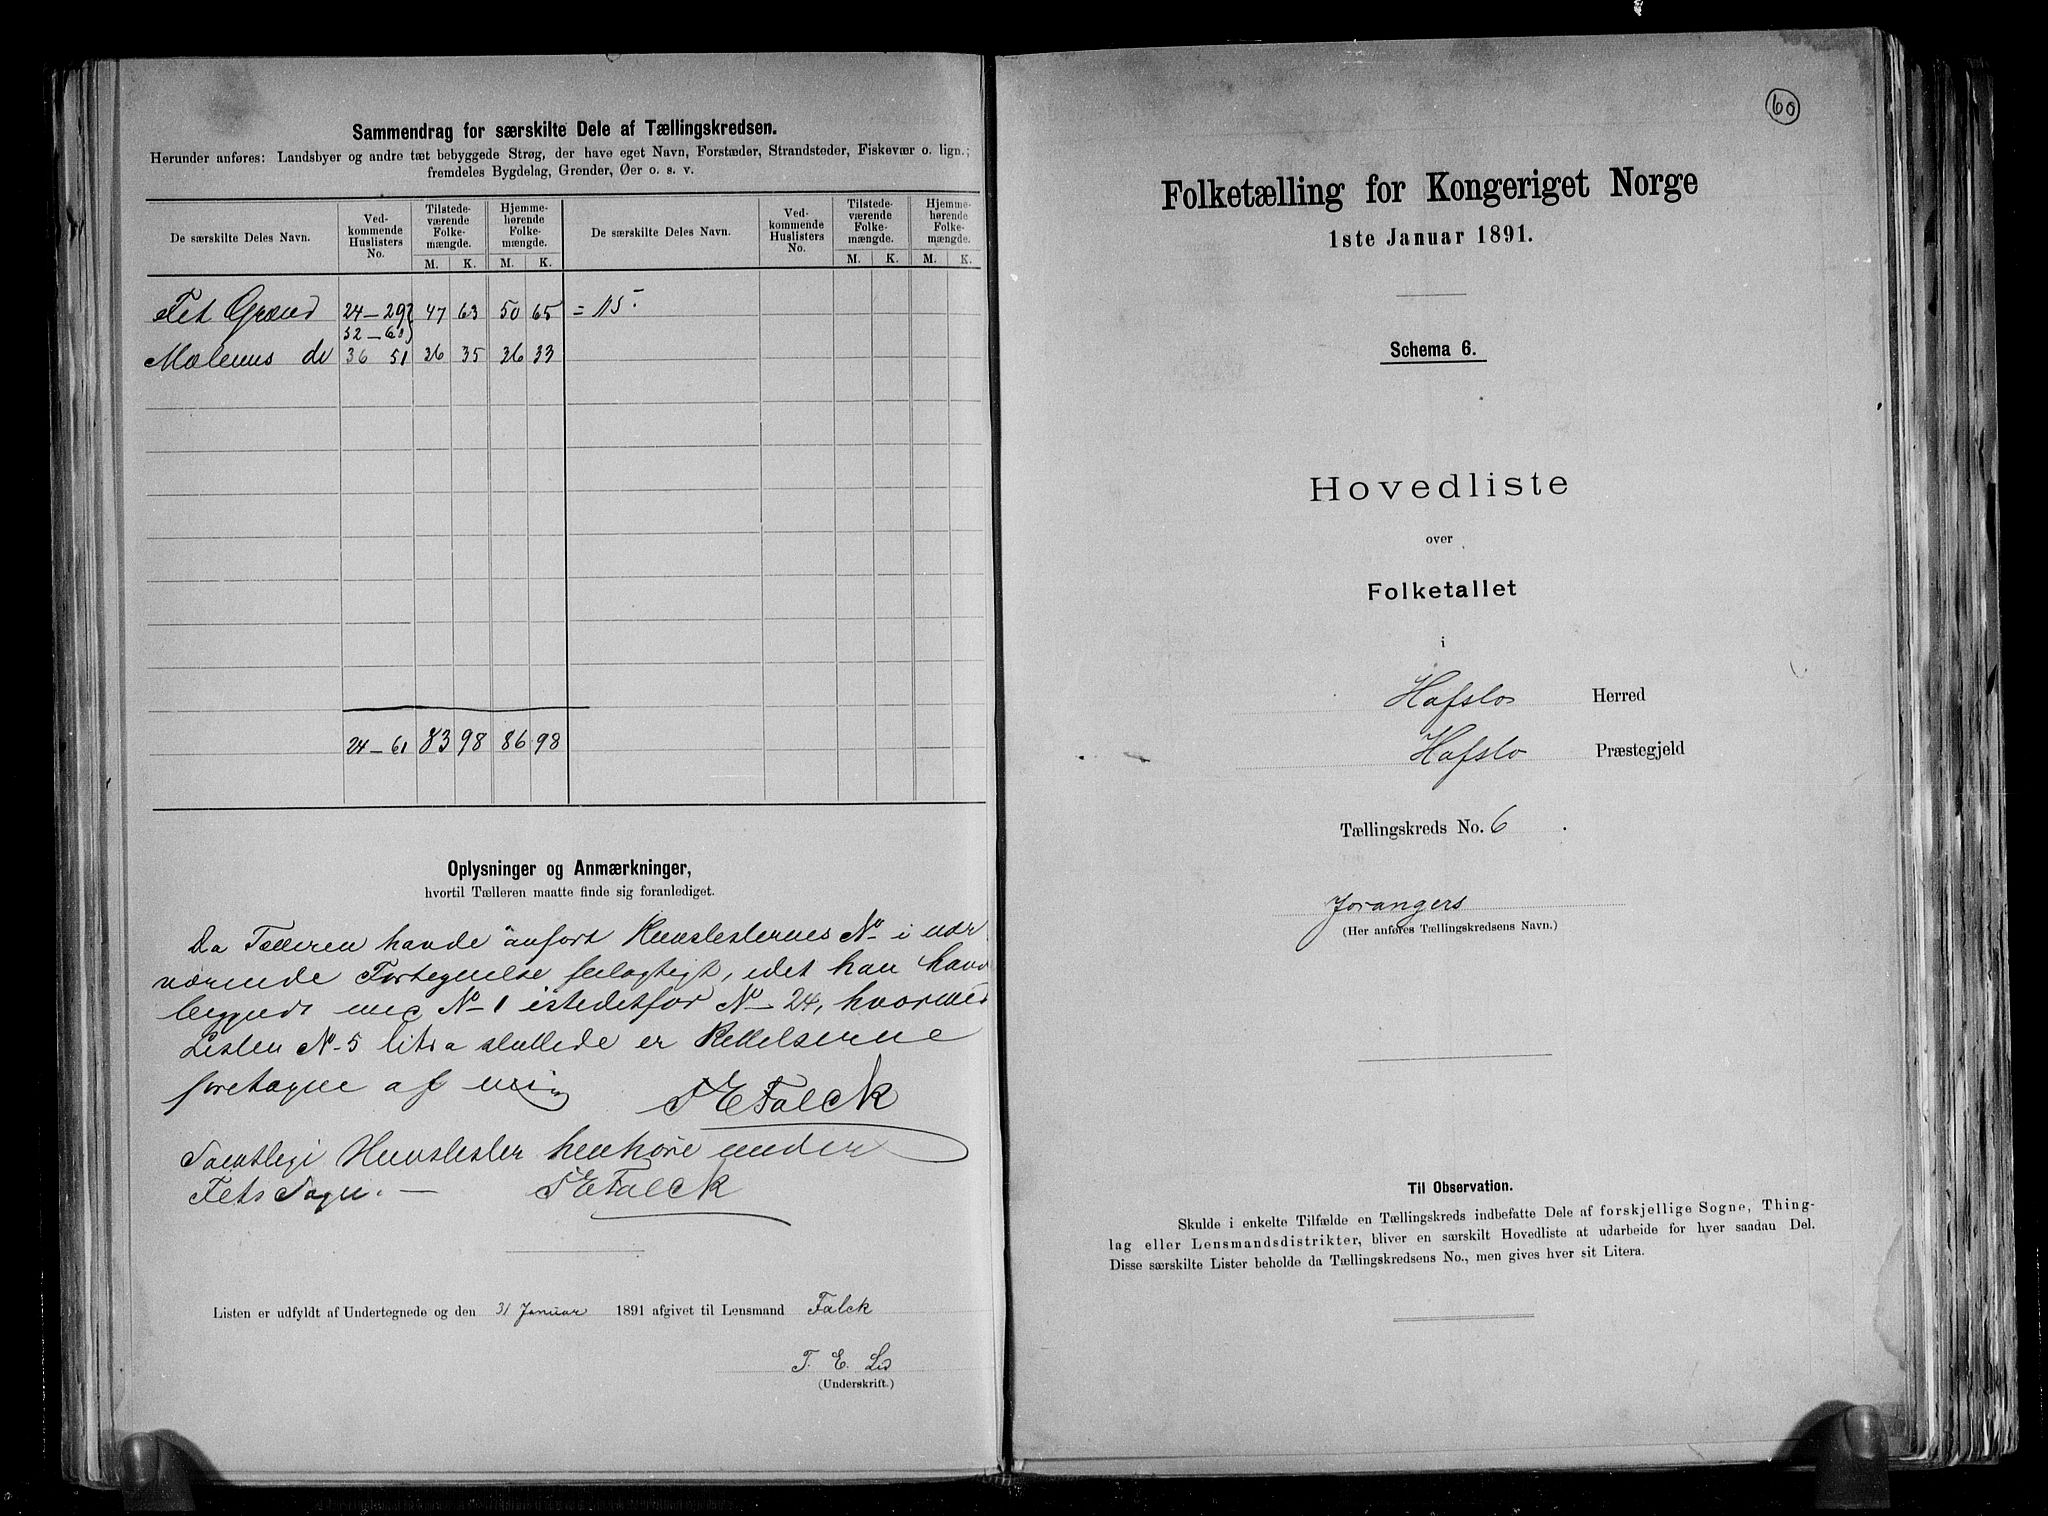 Sammendrag for særskilte Dele af Tællingskredsen.
Herunder anføres: Landsbyer og andre tæt bebyggede Strøg, der have eget Navn, Forstæder, Strandsteder, Fiskevær o. lign.;
fremdeles Bygdelag, Grender, Øer o. s. v.
De særskilte Deles Navn. Ved-kommende Huslisters No. Tilstede-værende Folke-mængde. Hjemme-hørende Folke-mængde. De særskilte Deles Navn. Ved-kommende Huslisters No. Tilstede-værende Folke-mængde. Hjemme-hørende Folke-mængde.
M. K. M. K. M. K. M. K.
Fet Grænd 24-29 47 63 50 65 = 115.
52-61
Mælenus do 36 51 36 35 36 33
24-61 83 98 86 98
Oplysninger og Anmærkninger,
hvortil Tælleren maatte finde sig foranlediget.
Da Tælleren havde anført Huuslisternes No i nær
værende Fortegnelse feilagtigt, idet han havde
begyndt med No 1 istedetfor No 24, hvormed
Listen No 5 litr a sluttede er Rettelserne
foretagne af mig T E Falck
Samtlige Huuslister henhøre under
Fets Sogn. — T E Falck
Listen er udfyldt af Undertegnede og den 31 Januar 1891 afgivet til Lensmand Falck
T. E. Lid
(Underskrift.)
60
Folketælling for Kongeriget Norge
1ste Januar 1891.
Schema 6.
Hovedliste
over
Folketallet
i
Hafslo Herred
Hafslo Præstegjeld
Tællingskreds No. 6.
Joranger
(Her anføres Tællingskredsens Navn.)
Til Observation.
Skulde i enkelte Tilfælde en Tællingskreds indbefatte Dele af forskjellige Sogne, Thing-
lag eller Lensmandsdistrikter, bliver en særskilt Hovedliste at udarbeide for hver saadan Del.
Disse særskilte Lister beholde da Tællingskredsens No., men gives hver sit Litera.